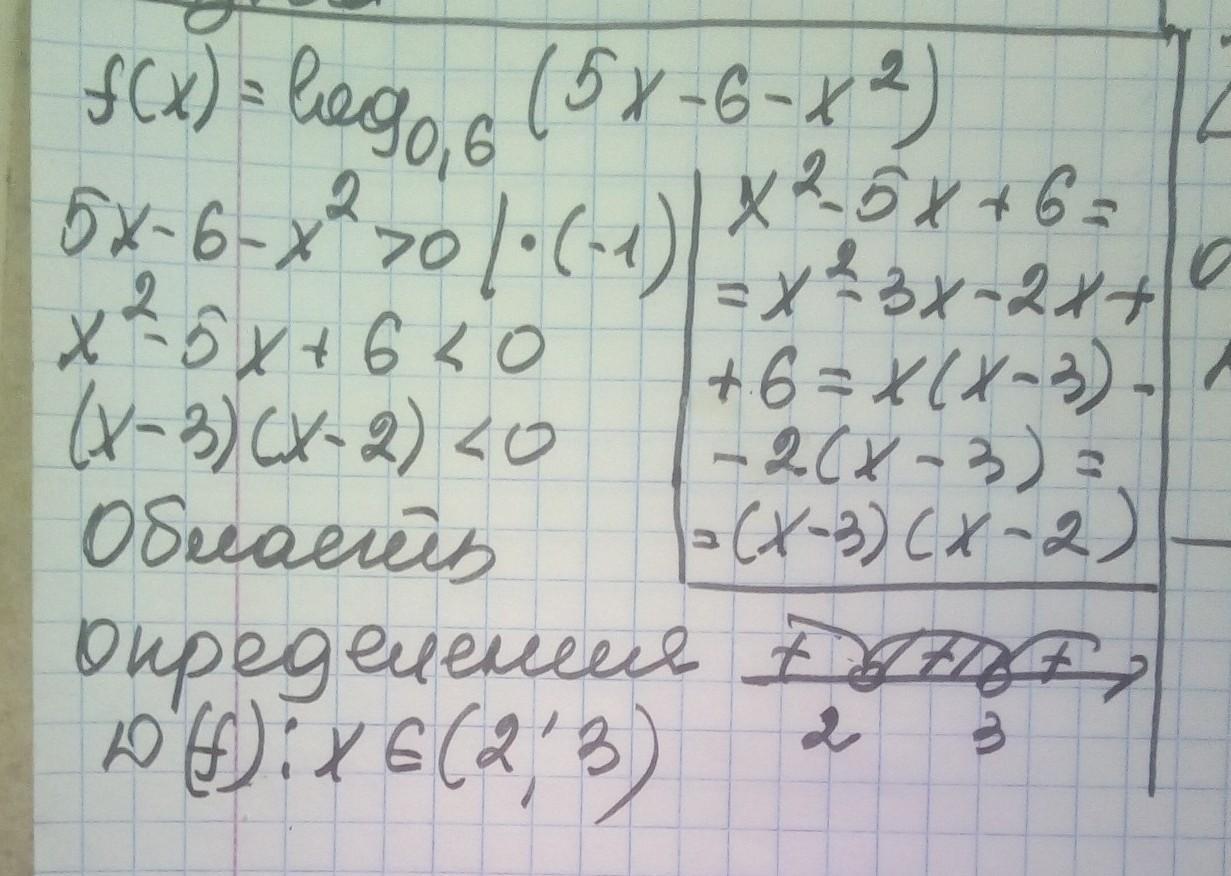 f(x) = log₀,₆ (5x - 6 - x²)
5x - 6 - x² > 0 | · (-1)
x² - 5x + 6 < 0
(x - 3)(x - 2) < 0
Область
определения
D(f): x ∈ (2; 3)
x² - 5x + 6 =
= x² - 3x - 2x +
+ 6 = x(x - 3) -
- 2(x - 3) =
= (x - 3)(x - 2)
+ + +
2 3